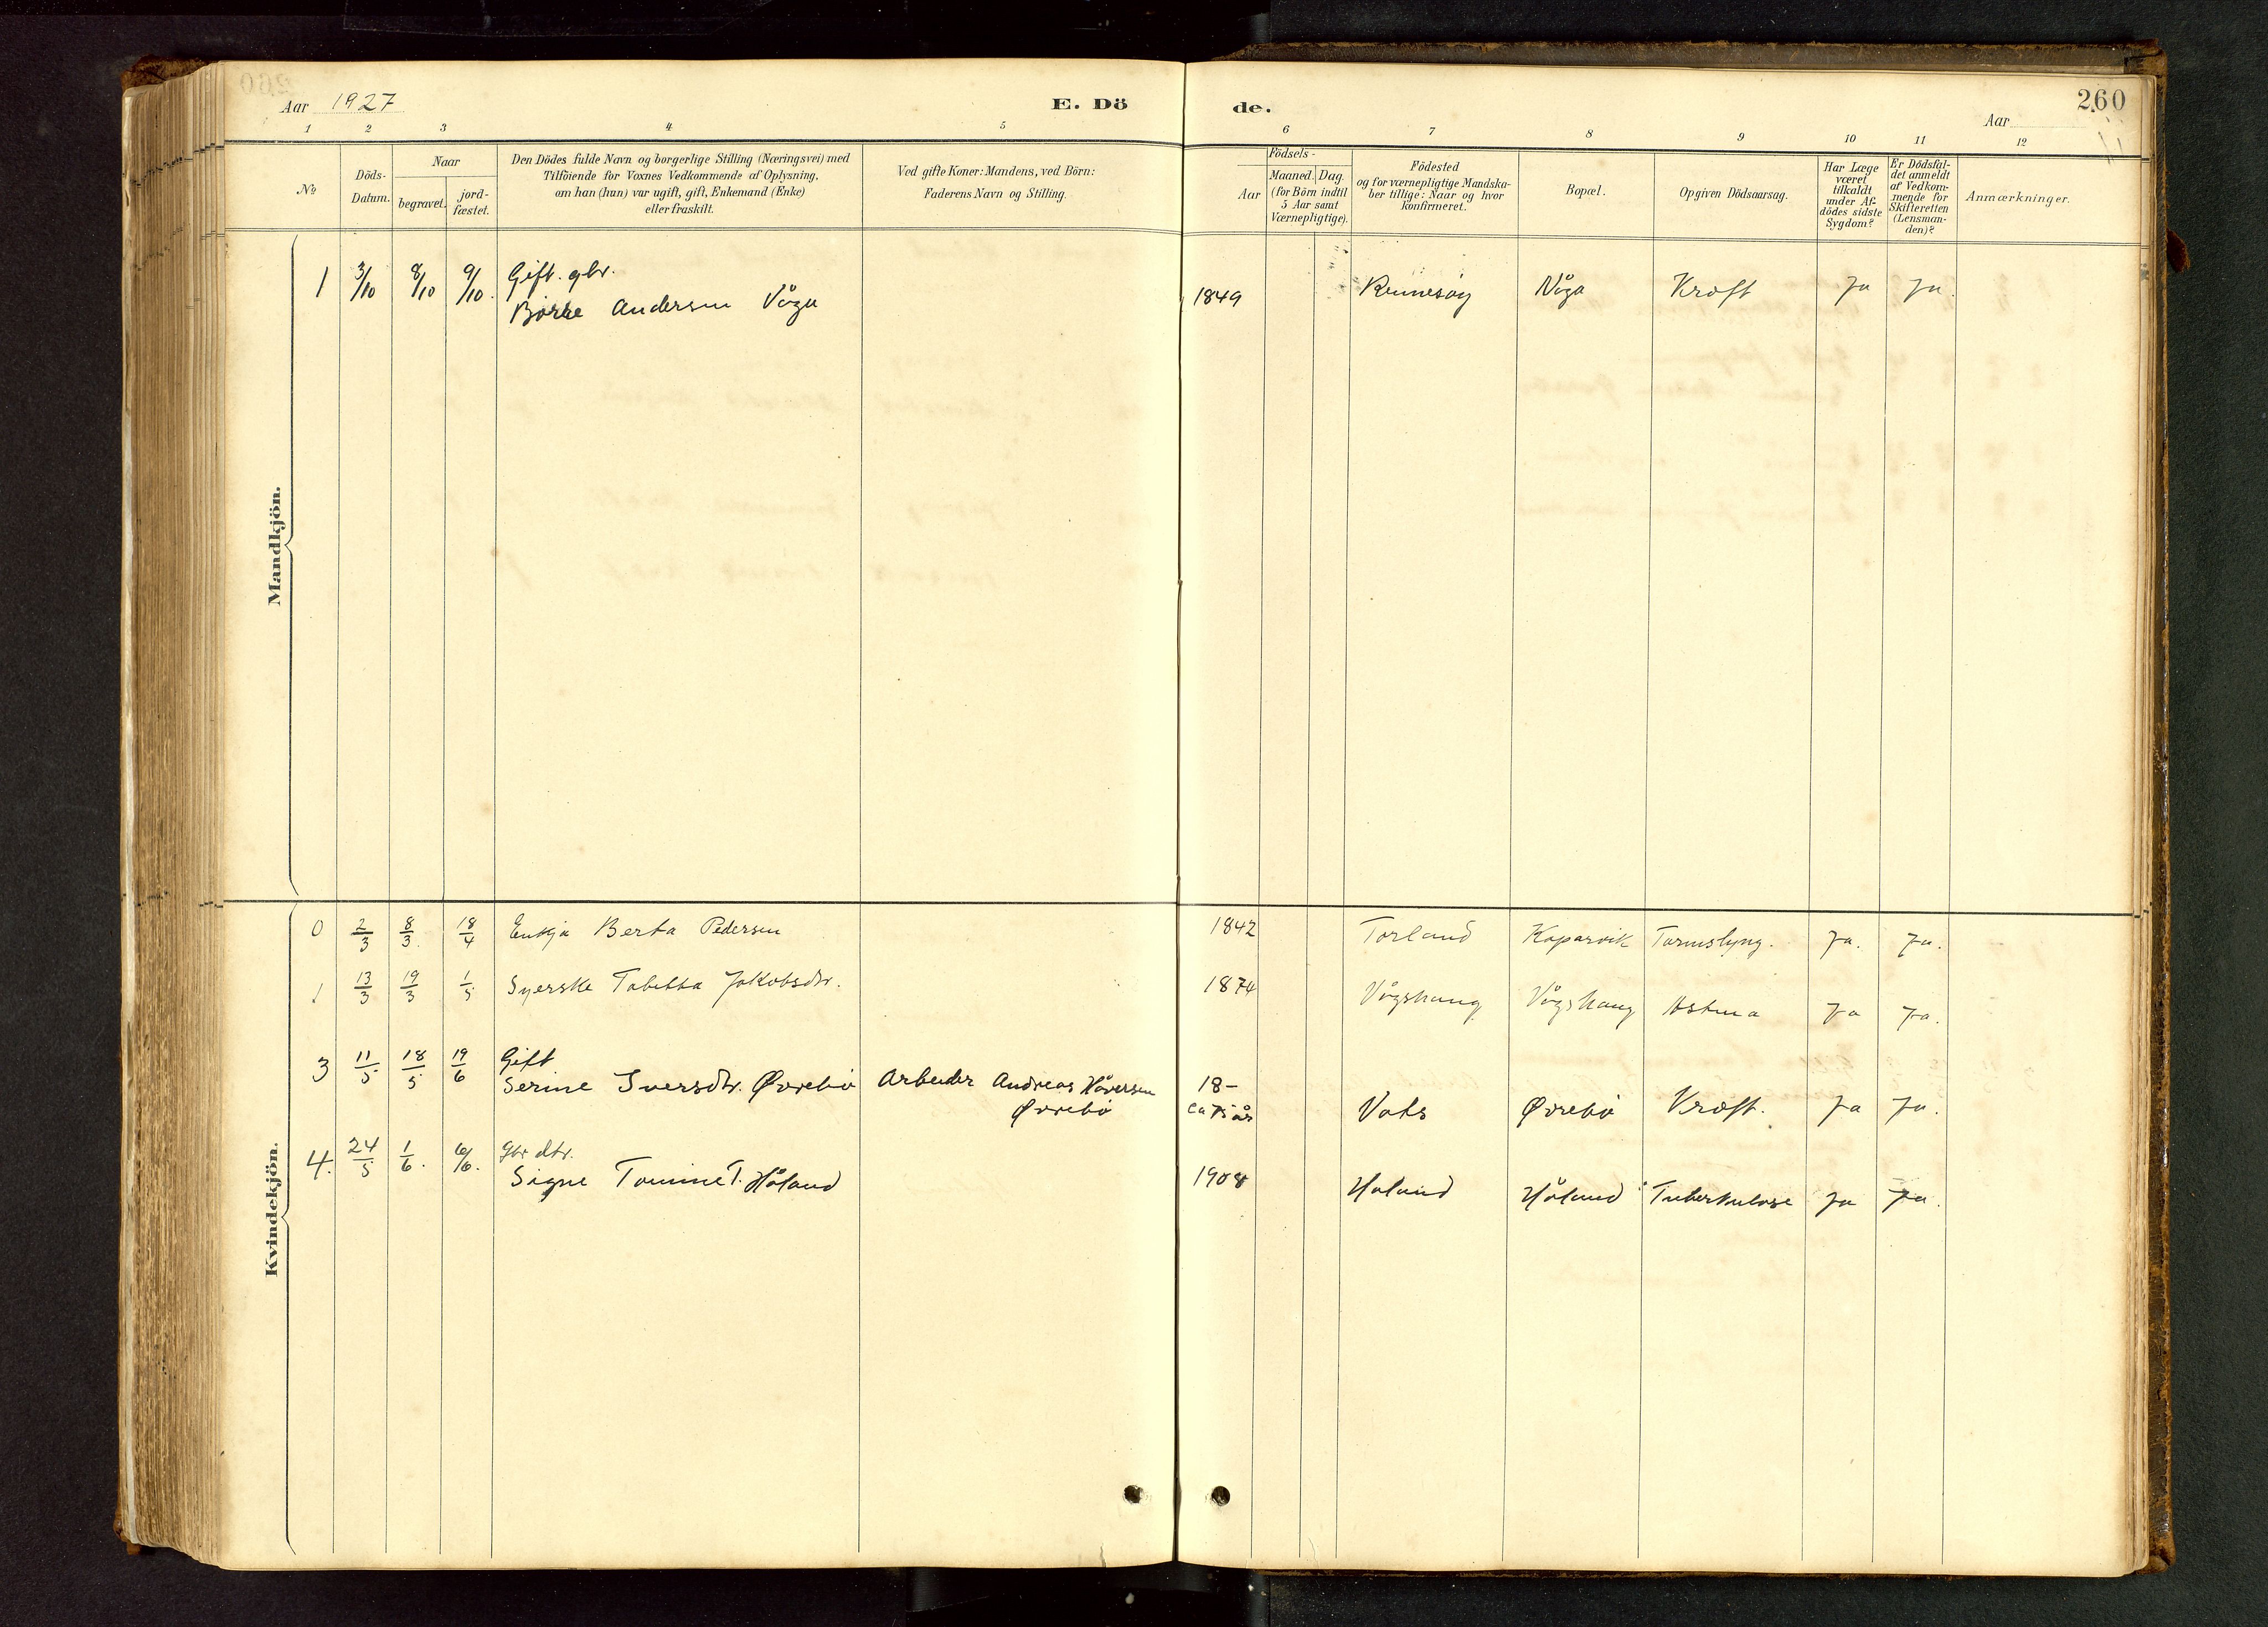 260
Aar 1927
E. Dö
de.
Aar
1 2 3 4 5 6 7 8 9 10 11 12
№
Döds-
Datum.
Naar
begravet.
jord-
fæstet.
Den Dödes fulde Navn og borgerlige Stilling (Næringsvei) med
Tilföiende for Voxnes Vedkommende af Oplysning,
om han (hun) var ugift, gift, Enkemand (Enke)
eller fraskilt.
Ved gifte Koner: Mandens, ved Börn:
Faderens Navn og Stilling.
Födsels-
Aar
Maaned. Dag.
(for Börn indtil
5 Aar samt
Værnepligtige).
Födested
og for værnepligtige Mandska-
ber tillige: Naar og hvor
konfirmeret.
Bopæl.
Opgiven Dödsaarsag.
Har Læge
været
tilkaldt
under Af-
dödes sidste
Sygdom?
Er Dödsfal-
det anmeldt
af Vedkom-
mende for
Skifteretten
(Lensman-
den)?
Anmærkninger.
Mandkjön.
1 3/10 8/10 9/10. Gift. gbr.
Børre Andersen Våga 1849 Rennesøy Våga Kræft Ja Ja.
Kvindekjön.
0 2/3 8/3. 18/4 Enkja Berta Pedersen 1842 Torland Kopervik Tarmslyng. Ja. Ja.
1 13/3 19/3 1/5 Syerske Tabitta Jakobsdtr. 1874 Vågshaug Vågshaug Astma Ja Ja.
3 11/5 18/5 19/6 Gift
Serine Iversdtr. Øvrebø Arbeider Andreas Håversen 18-
Øvrebø ca 75 år Vats Øvrebø Kræft. Ja Ja.
4. 24/5 1/6. 6/6. gbr dtr.
Signe Tomine T. Håland 1908 Håland Håland Tuberkulose Ja Ja.